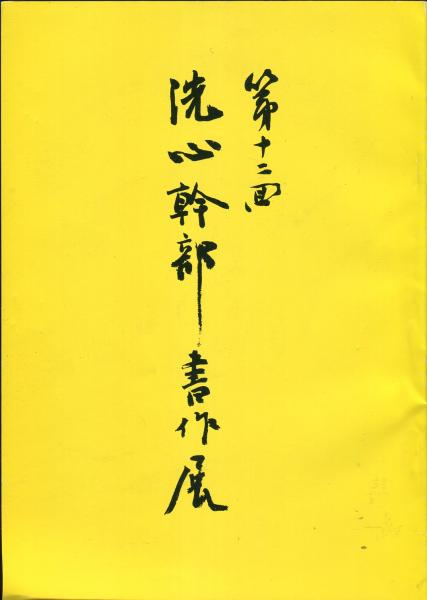 第十二回
洗心幹部書作展